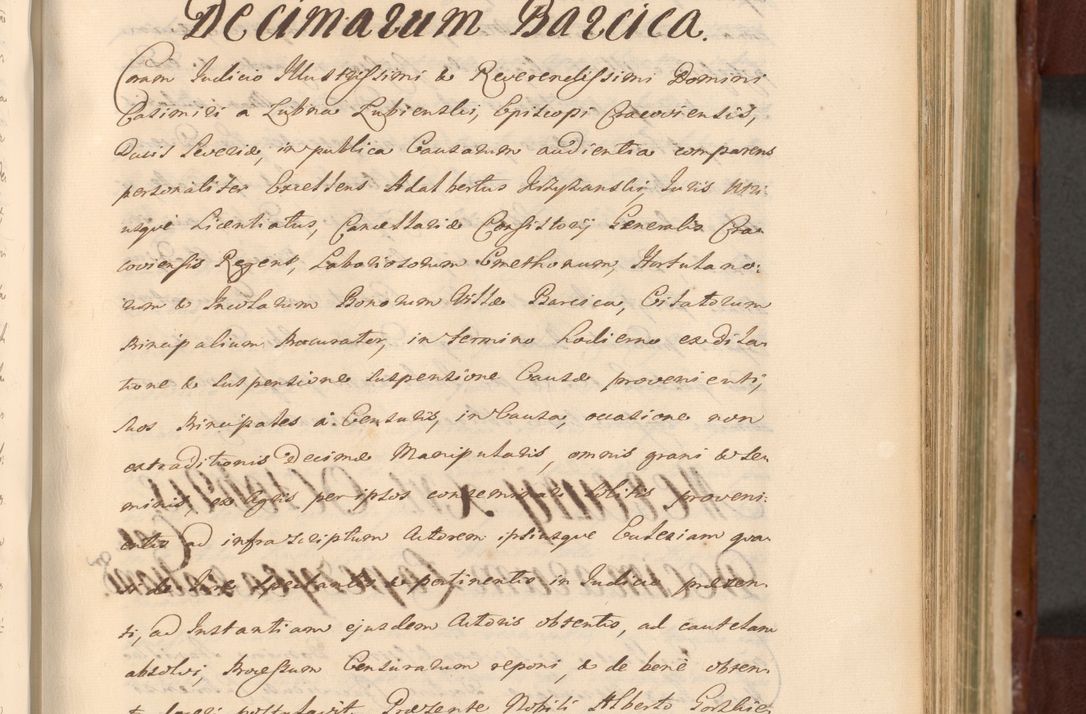 Decimarum Barcica.
Coram Judicio Illustrissimi & Reverendissimi Domini
Casimiri a Lubna Lubienski, Episcopi Cracoviensis,
Ducis Severiæ, in publica Causarum audientia comparens
personaliter Excellens Adalbertus Juris Utri-
usque Licentiatus, Cancellariæ Consistorij Generalis Cra-
coviensis Regens, Laboriosorum Cmethonum, Hortulano-
rum & Incolarum Bonorum Villæ Barcica, Citatorum
Principalium Procurator, in termino hodierno ex dila-
tione & suspensione suspensione Causæ provenienti,
suos Principales à Censuris, in Causa, occasione non
extraditionis Decimæ Manipularis, omnis grani & se-
minis, ex Agris per ipsos conseminari solitis proveni-
entis ad infrascriptum Actorem ipsiusque Ecclesiam
de Jure spectantis & pertinentis in Judicio præsen-
ti, ad Instantiam ejusdem Actoris obtentis, ad cautelam
absolvi, Processum Censurarum reponi, & de bene obten-
postulavit. Præsente Nobili Alberto